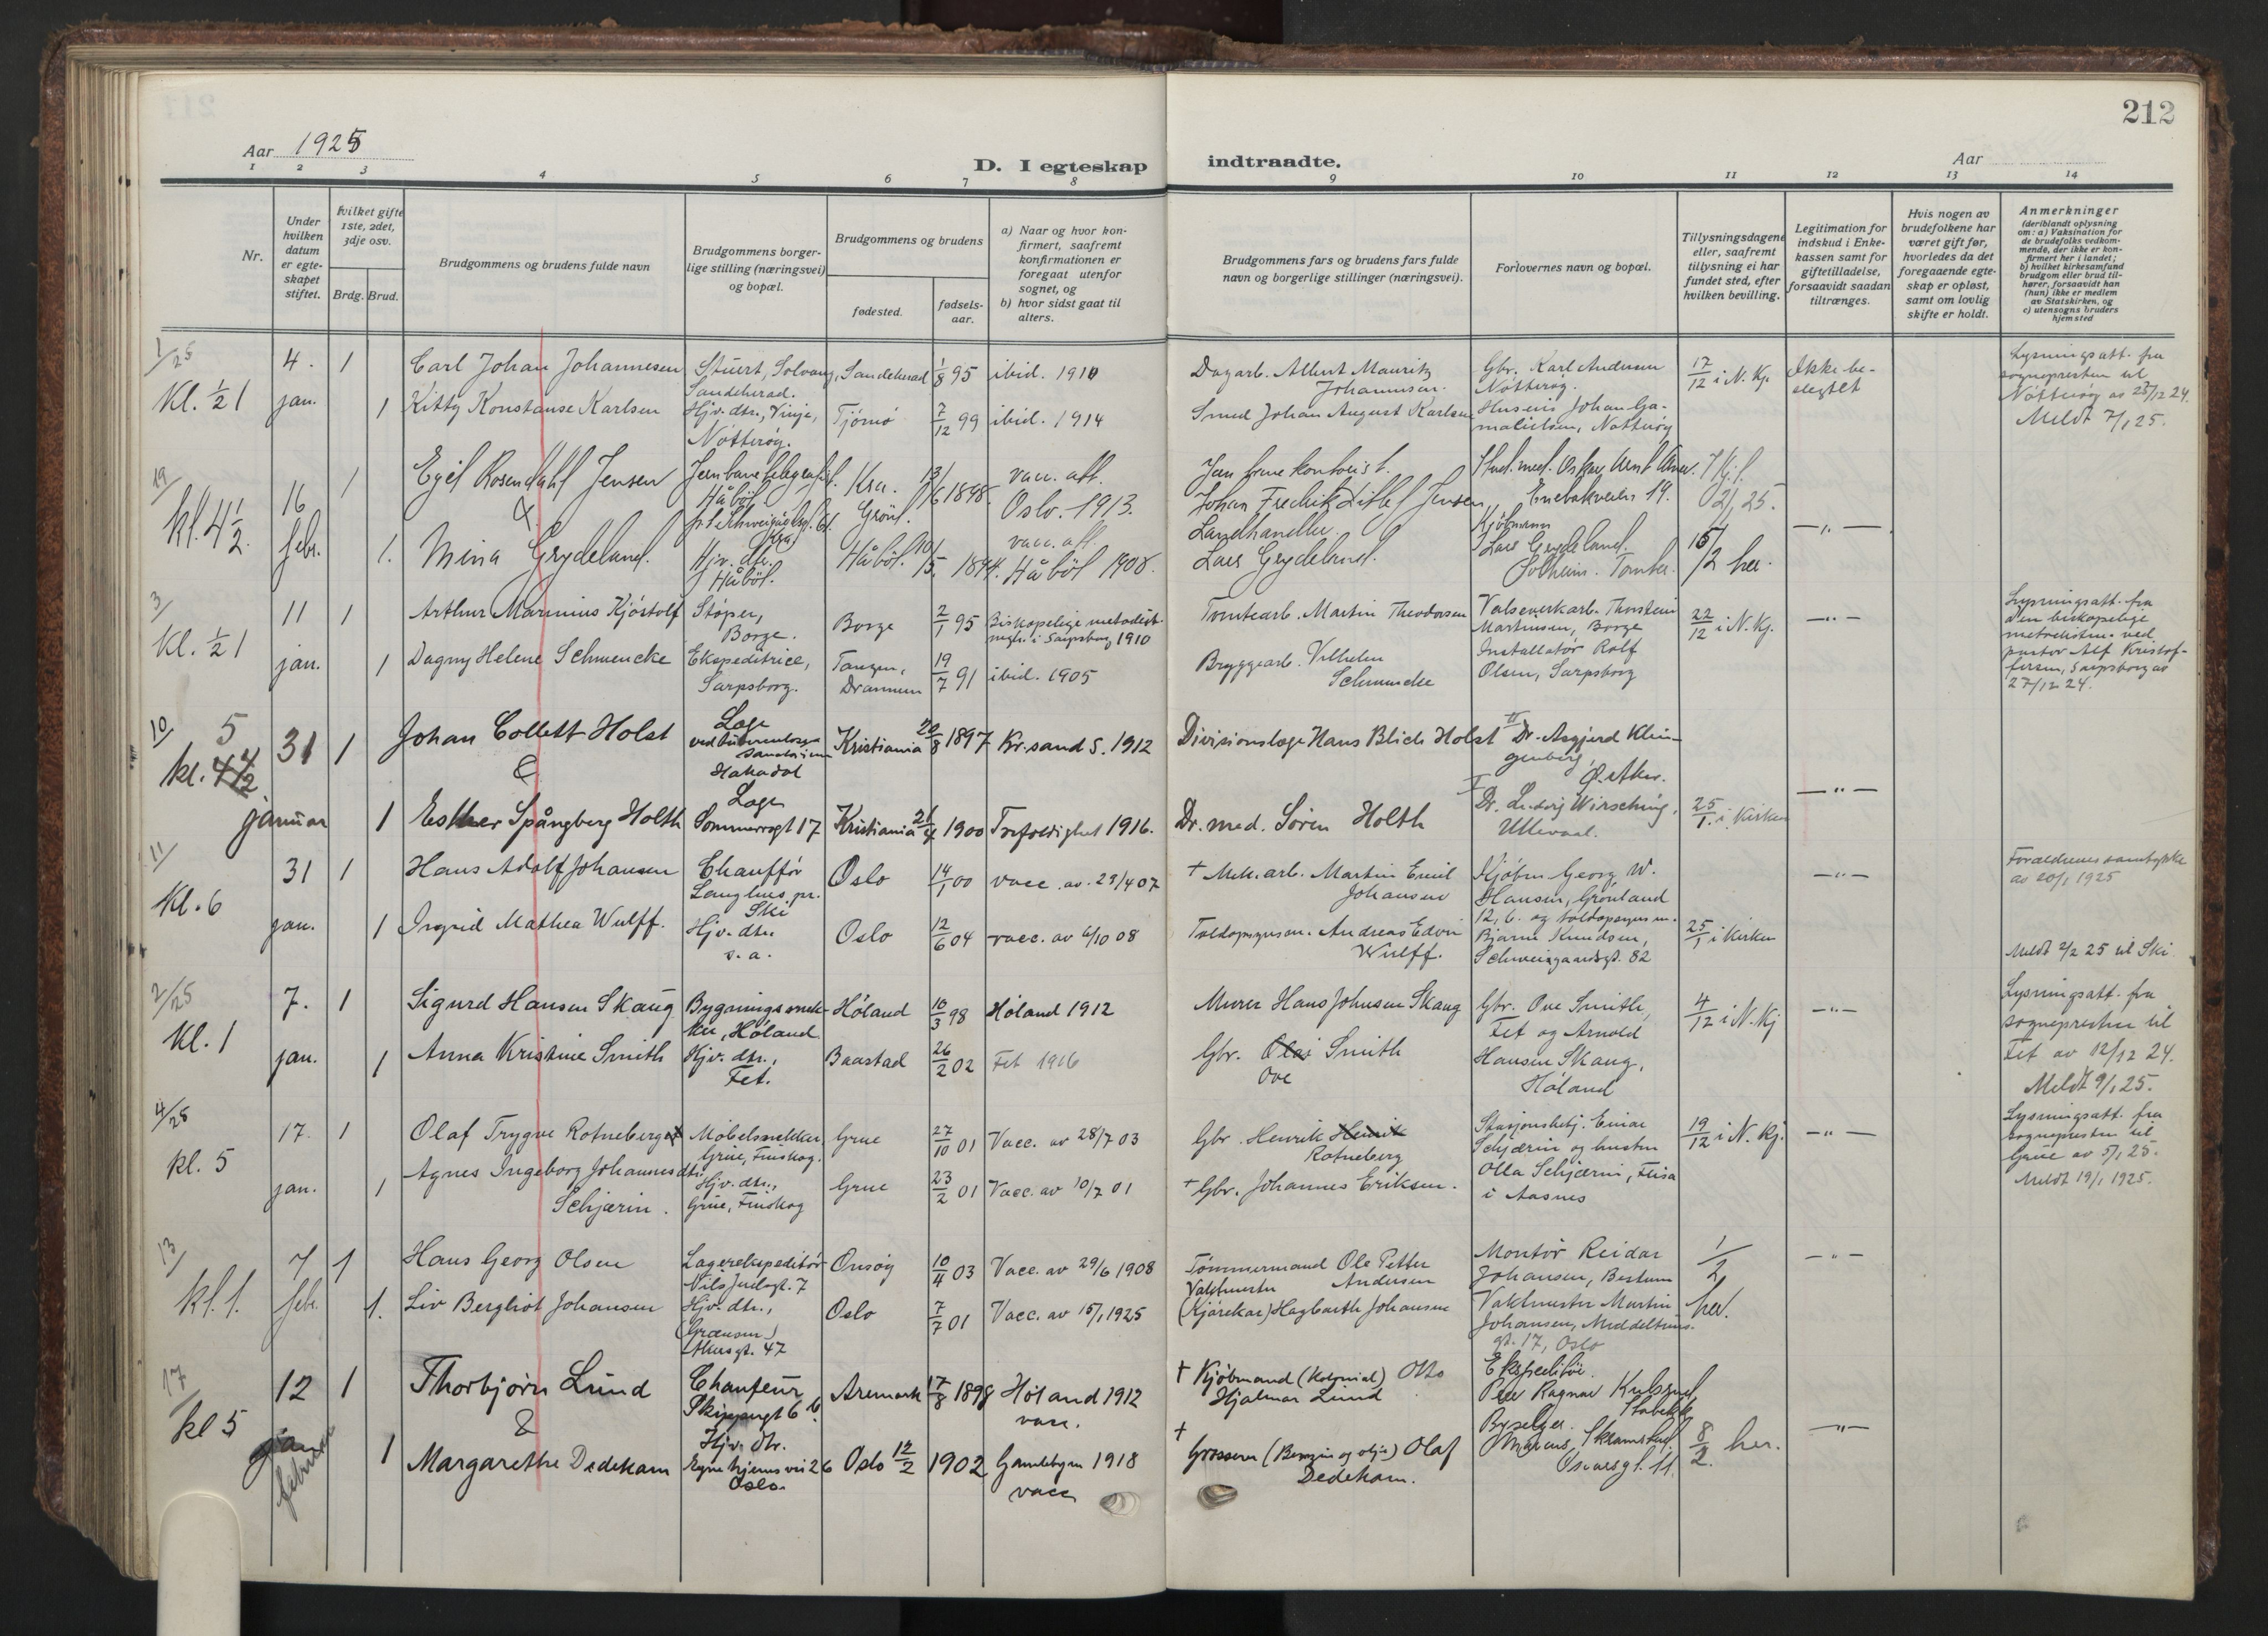 212
Aar 1925
D. I egteskap indtraadte.
Aar
1 2 3 4 5 6 7 8 9 10 11 12 13 14
Nr.
Under hvilken datum er egteskapet stiftet.
Hvilket gifte 1ste, 2det, 3dje osv.
Brdg. Brud.
Brudgommens og brudens fulde navn
Brudgommens borgerlige stilling (næringsvei) og bopæl.
Brudgommens og brudens
fødested.
fødselsaar.
a) Naar og hvor konfirmert, saafremt konfirmationen er foregaat utenfor sognet, og
b) hvor sidst gaat til alters.
Brudgommens fars og brudens fars fulde navn og borgerlige stillinger (næringsvei).
Forlovernes navn og bopæl.
Tillysningsdagene eller, saafremt tillysning ei har fundet sted, efter hvilken bevilling.
Legitimation for indskud i Enkekassen samt for giftetilladelse, forsaavidt saadan tiltrænges.
Hvis nogen av brudefolkene har været gift før, hvorledes da det foregaaende egteskap er opløst, samt om lovlig skifte er holdt.
Anmerkninger
(deriblandt oplysning om: a) Vaksination for de brudefolks vedkommende, der ikke er konfirmert her i landet;
b) hvilket kirkesamfund brudgom eller brud tilhører, forsaavidt han (hun) ikke er medlem av Statskirken, og
c) utensogns bruders hjemsted
1/25 Kl. ½ 1
4. jan. 1
Carl Johan Johannesen
Stuert, Solvang, Sandeherad.
Sandeherad 1/8 95 ibid. 1910
Dagarb. Albert Mauritz Johannesen.
Gbr. Karl Andersen Nøtterøy.
17/12 i N. Kj.
Ikke belegtet
Lysningsatt. fra sognepresten til Nøtterøy av 27/12 24.
Meldt 7/1 25.
1 Kitty Konstanse Karlsen
Hjv. dtr., Vinje, Nøtterøy.
Tjømø 7/12 99 ibid. 1914
Smed Johan August Karlsen
Huseier Johan Gamalielsen, Nøtterøy
19/ kl. 4½
16 febr. 1
Egil Rosendahl Jensen
&
Jernbanetelegrafist. Håbøl
Kra. Grønl. 13/6 1898.
vacc. att. Oslo. 1913.
Jernbanekontorist. Johan Fredrik Ditlef Jensen
Stud. med. Oskar
Enebakveien 19.
1. Mina Grydeland.
Hjv. dtr. Håbøl.
Håbøl. 10/5. 1894.
vacc. att. Håbøl 1908.
Landhandler. Lars Grydeland.
Kjøbmann Lars Grydeland. Solheim. Tomter.
15/2 her.
— „ —
3/ Kl. ½ 1
11 jan. 1
Arthur Marinius Kjöstolf
Støper, Borge.
Borge 2/1 95
Biskopelige metodistmgh. i Sarpsborg 1910
Tomtearb. Martin Theodorsen
Valseverkarb. Thorstein Martinsen, Borge
22/12 i N. Kj.
— „ —
Lysningsatt. fra Den biskopelige metodistm. ved pastor Alf Kristoffersen, Sarpsborg av 27/12 24.
1 Dagny Helene Schwencke
Ekspeditrice, Sarpsborg.
Tangen, Drammen 19/7 91 ibid. 1905
Bryggearb. Vilhelm Schwencke
Installatør Rolf Olsen, Sarpsborg
10/ 5 kl. 4½
31 januar 1
Johan Collett Holst
&
Læge ved tuberkulosesanatorium Hakadal
Kristiania 20/8 1897 Kr.sand S. 1912
Divisionslæge Hans Blich Holst
II Dr. Asgjerd Klingenberg, Ø. Aker.
1 Esther Spångberg Holth
Læge Sommerrogt 17
Kristiania 21/4 1900 Trefoldighet 1916.
Dr. med. Sören Holth
I Dr. Ludvig Wirsching, Ullevaal.
25/1. i Kirken
— „ —
11/ Kl. 6
31 jan. 1
Hans Adolf Johansen
Chauffør Langhus pr. Ski
Oslo 14/1 00 vacc. av. 29/4 07
† Mek. arb. Martin Emil Johansen
Kjøbm Georg W. Hansen, Grønland 12, 6. og toldopsynsm. Bjarne Knudsen, Schweigaardsgt. 82
— „ —
Forældrenes samtykke av 20/1 1925
1 Ingrid Mathea Wulff.
Hjv. dtr. s. a.
Oslo 12/6 04 vacc. av 6/10 08
Toldopsynsm. Andreas Edvin Wulff.
25/1 i Kirken
Meldt 2/2 25 til Ski
2/25 Kl. 1
7. jan. 1
Sigurd Hansen Skaug
Bygningssnekker, Høland
Høland 10/3 98 Høland 1912
Murer Hans Johnsen Skaug
Gbr. Ove Smith, Fet og Arnold Hansen Skaug, Høland
4/12 i N. Kj
— „ —
Lysningsatt. fra sognepresten til Fet av 12/12 24.
Meldt 9/1 25.
1 Anna Kristine Smith
Hjv. dtr., Fet.
Baastad 26/2 02 Fet 1916
Gbr. Olai Smith
Ove
4/25 kl. 5
17. jan. 1
Olaf Trygve Rotneberget
Møbelsnekker, Grue, Finskog.
Grue 27/10 01 Vacc. av 28/7 03
Gbr. Henrik Henrik Rotneberg
Stasjonsbetj. Einar Schjærin og hustru Olla Schjærin, Flisa i Aasnes
19/12 i N. Kj.
— „ —
Lysningsatt. fra sognepresten til Grue av 5/1 25.
Meldt 19/1 1925.
1 Agnes Ingeborg Johannesdtr. Schjærin.
Hjv. dtr., Grue, Finskog
Grue 23/2 01 Vacc. av 10/7 01
† Gbr. Johannes Eriksen.
13/ kl. 1.
7 febr. 1
Hans Georg Olsen
Lagerekspeditør Nils Juelsgt. 7
Onsøy 10/4 03 Vacc. av 29/6 1908
Tømmermand Ole Petter Andersen
Montør Reidar Johansen, Bestum
1/2 her.
— „ —
1. Liv Bergliot Johansen
Hjv. dtr., (Grænsen) Akersgt. 47
Oslo 7/7 01 Vacc. av 15/1 1925
Vaktmester (Kjørekar) Hagbarth Johansen
Vaktmester Martin Johansen, Middeltunsgt. 17, Oslo
17/ kl 5
12 jan februar 1
Thorbjørn Lund
&
Chauffeur Skippergt 6 b.
Aremark 17/8 1898 Høland 1912 vacc.
† Kjøbmand (Kolonial) Otto Hjalmar Lund
Ekspeditør. Peer Ragnar Stabekk
1 Margarethe Dedekam
Hjv. dtr. Egne hjems vei 26 Oslo.
Oslo 12/2 1902 Gamlebyen 1918 vacc
† Grosserer (Benzin og olje) Olaf Dedekam.
Byselger. Marius Skramstad. Oscarsgt. 11.
8/2. her.
— „ —